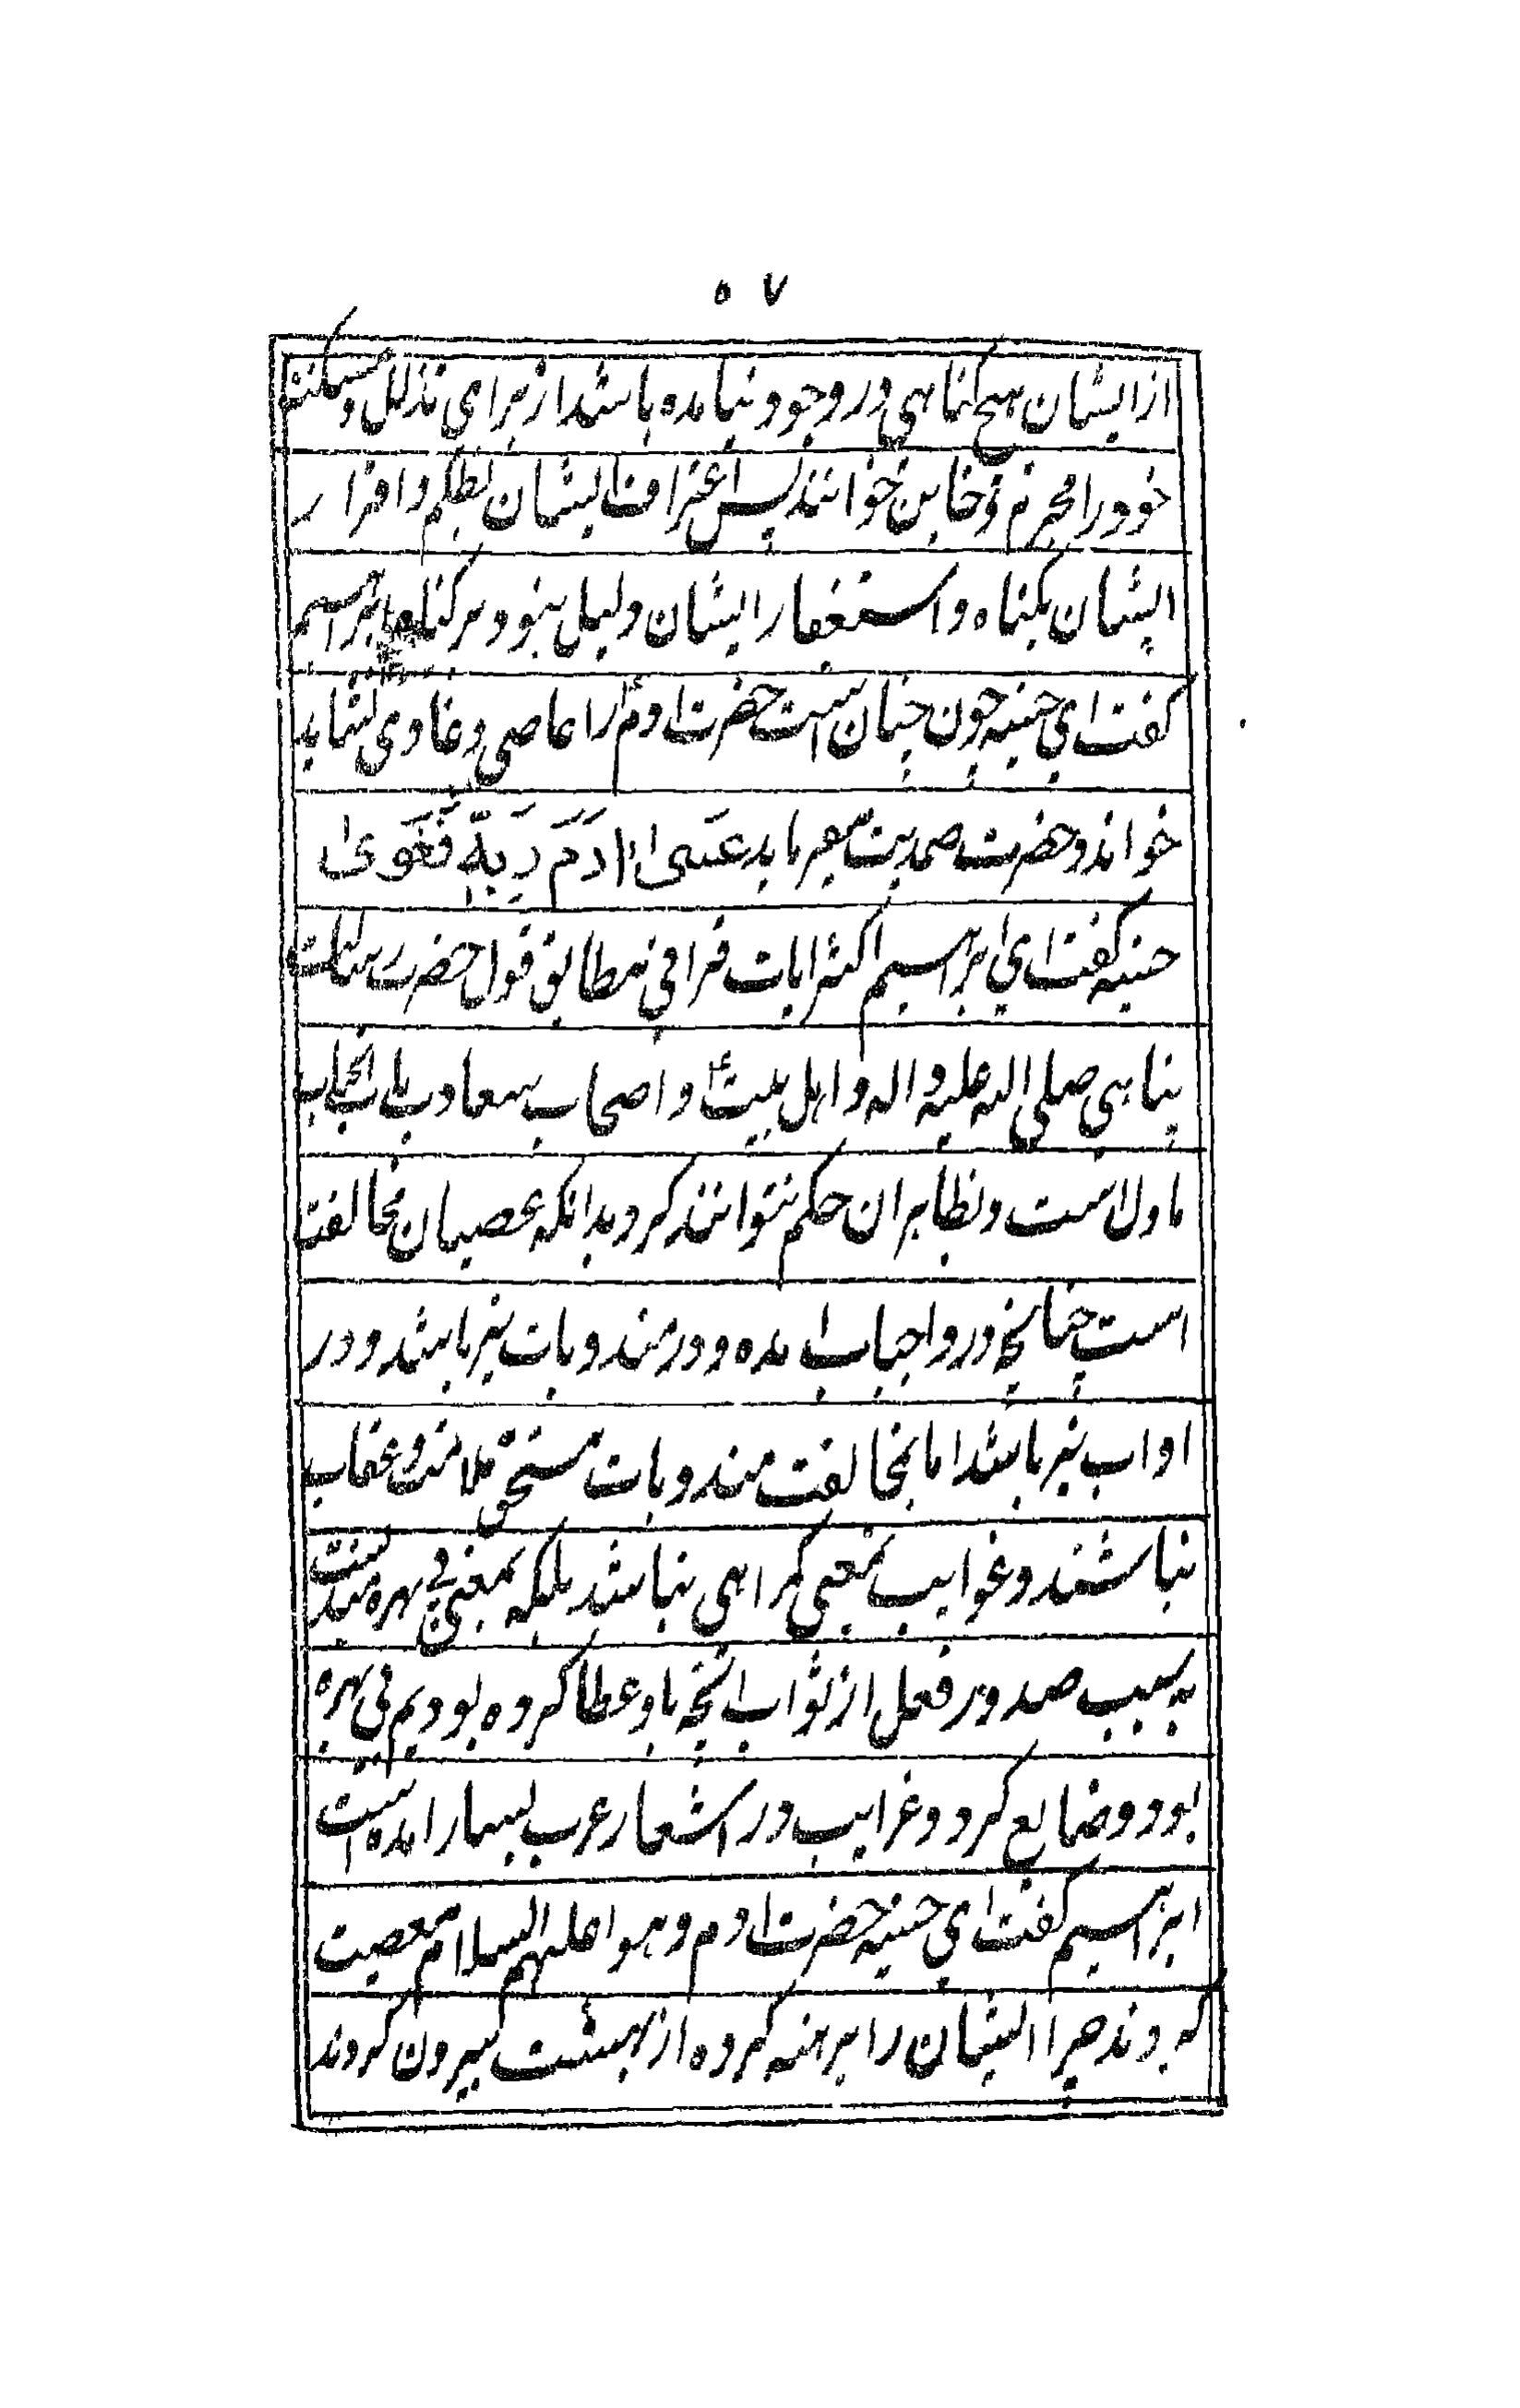 ٥٧
از ایشان هیچ کناهی در وجود نیامده باشد از برای تذلل و مسکنت
خود را مجرم و خاین خوانند پس اعتراف ایشان بظلم و اقرار
ایشان بکناه و استغفار ایشان دلیل نبود بر کناه ابراهیم
کفت ای حنیه چون چنان است حضرت ادم را عاصی و غاوی نشاید
خواند و حضرت صمدیت میفرماید عَصَى ادَمَ رَبَهِّ فَغَوىٰ
حنیه کفت ای ابراهیم اکثر ایات قرانی مطابق قول حضرت رسالت
پناهی صلی الله علیه و اله و اهل بیت ع و اصحاب
ماول است و بظاهر ان حکم نتوانند کرد بدانکه عصیان مخالفت
است چنانچه در واجبات امده و در مندوبات نیز باشد و در
اداب نیز باشد اما بمخالفت مندوبات مستحق ملامت و عقاب
نباشند و غوایب بمعنی کمراهی نباشد بلکه بمعنی بی بهره
به سبب صدور فعل از ثواب انچه باو عطا کرده بودیم بی بهره
بود و ضایع کرد و غرایب در اشعار عرب بسیار امده است
ابراهیم کفت ای حنیه حضرت ادم و هوا علیهم السلام معصیت
کردند چرا ایشان را برهنه کرده از بهشت بیرون کردند